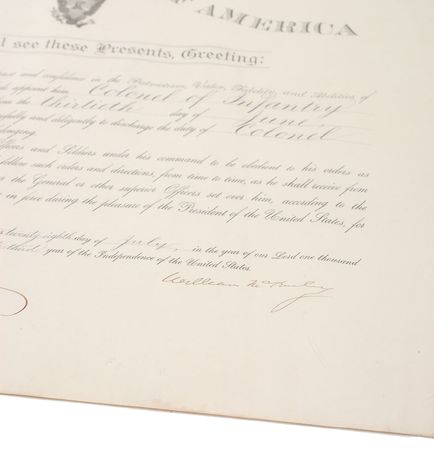 OF AMERICA
l see these Presents, Greeting:
and confidence in the Patriotism, Valor, Fidelity, and Abilities of
appoint him Colonel of Infantry
thirtieth day of June
fully and diligently to discharge the duty of Colonel
longing.
fficers and Soldiers under his command to be obedient to his orders as
follow such orders and directions, from time to time, as he shall receive from
the General or other superior Officers set over him, according to the
in force during the pleasure of the President of the United States, for
twenty eighth day of July, in the year of our Lord one thousand
third year of the Independence of the United States.
William McKinley